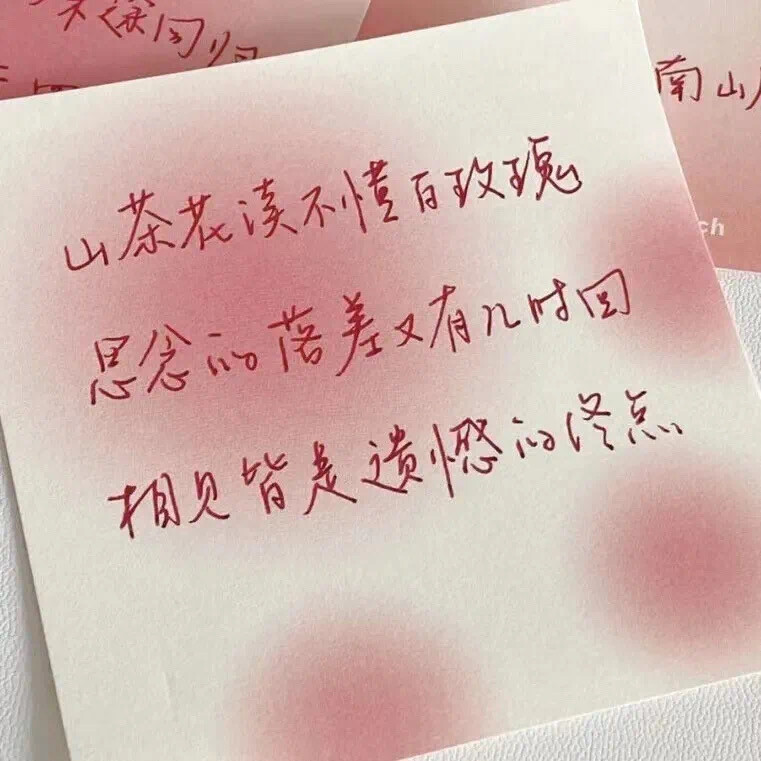 山茶花读不懂白玫瑰
思念的落差又有几时回
相见皆是遗憾的终点
南山
ch